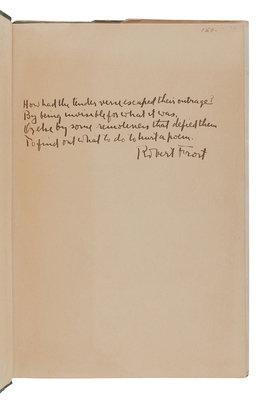 How had the tender verse escaped their outrage?
By being invisible for what it was,
Or else by some remoteness that defied them
To find out what to do to hurt a poem.
Robert Frost